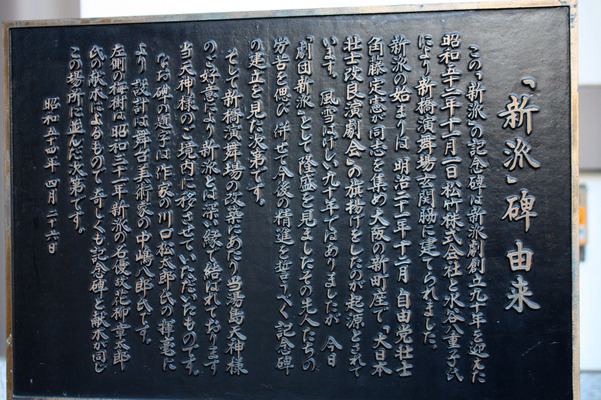 「新派」碑由来
この「新派」の記念碑は新派劇創立九十年を迎えた
昭和五十二年十一月一日松竹株式会社と水谷八重子氏
により、新橋演舞場玄関脇に建てられました。
新派の始まりは、明治二十一年十二月、自由党壮士
角藤定憲が同志を集め大阪の新町座で「大日本
壮士改良演劇会」の旗揚げをしたのが起源とされて
います。風雪はげしい九十年ではありましたが、今日
「劇団新派」として隆盛を見ましたその先人たちの
労苦を偲び、併せて今後の精進を誓うべく記念碑
の建立を見た次第です。
そして、新橋演舞場の改築にあたり当湯島天神様
の御好意により新派とは深い縁で結ばれております
当天神様のご境内に移させていただいたものです。
なお碑の題字は、作家の川口松太郎氏の揮毫に
より、設計は舞台美術家の中嶋八郎氏です。
左側の梅樹は、昭和三十一年新派の名優故花柳章太郎
氏の献木によるもので、奇しくも記念碑と献木が同じ
この場所に並んだ次第です。
昭和五十四年四月二十六日